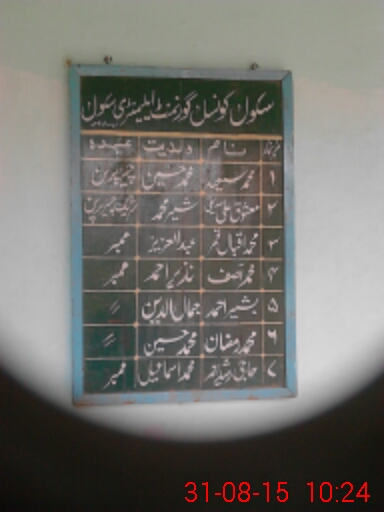 سکول کونسل گورنمنٹ ایلیمنٹری سکول
نمبرشمار نام ولدیت عہدہ
۱ محمد سعید محمد حسین چیئرپرسن
۲ معشوق علی شیر محمد
۳ محمد اقبال قمر عبدالعزیز ممبر
۴ محمد آصف نذیر احمد ممبر
۵ بشیر احمد جمال الدین 〃
۶ محمد رمضان محمد حسین 〃
۷ حاجی رشید احمد محمد اسماعیل ممبر
31-08-15 10:24